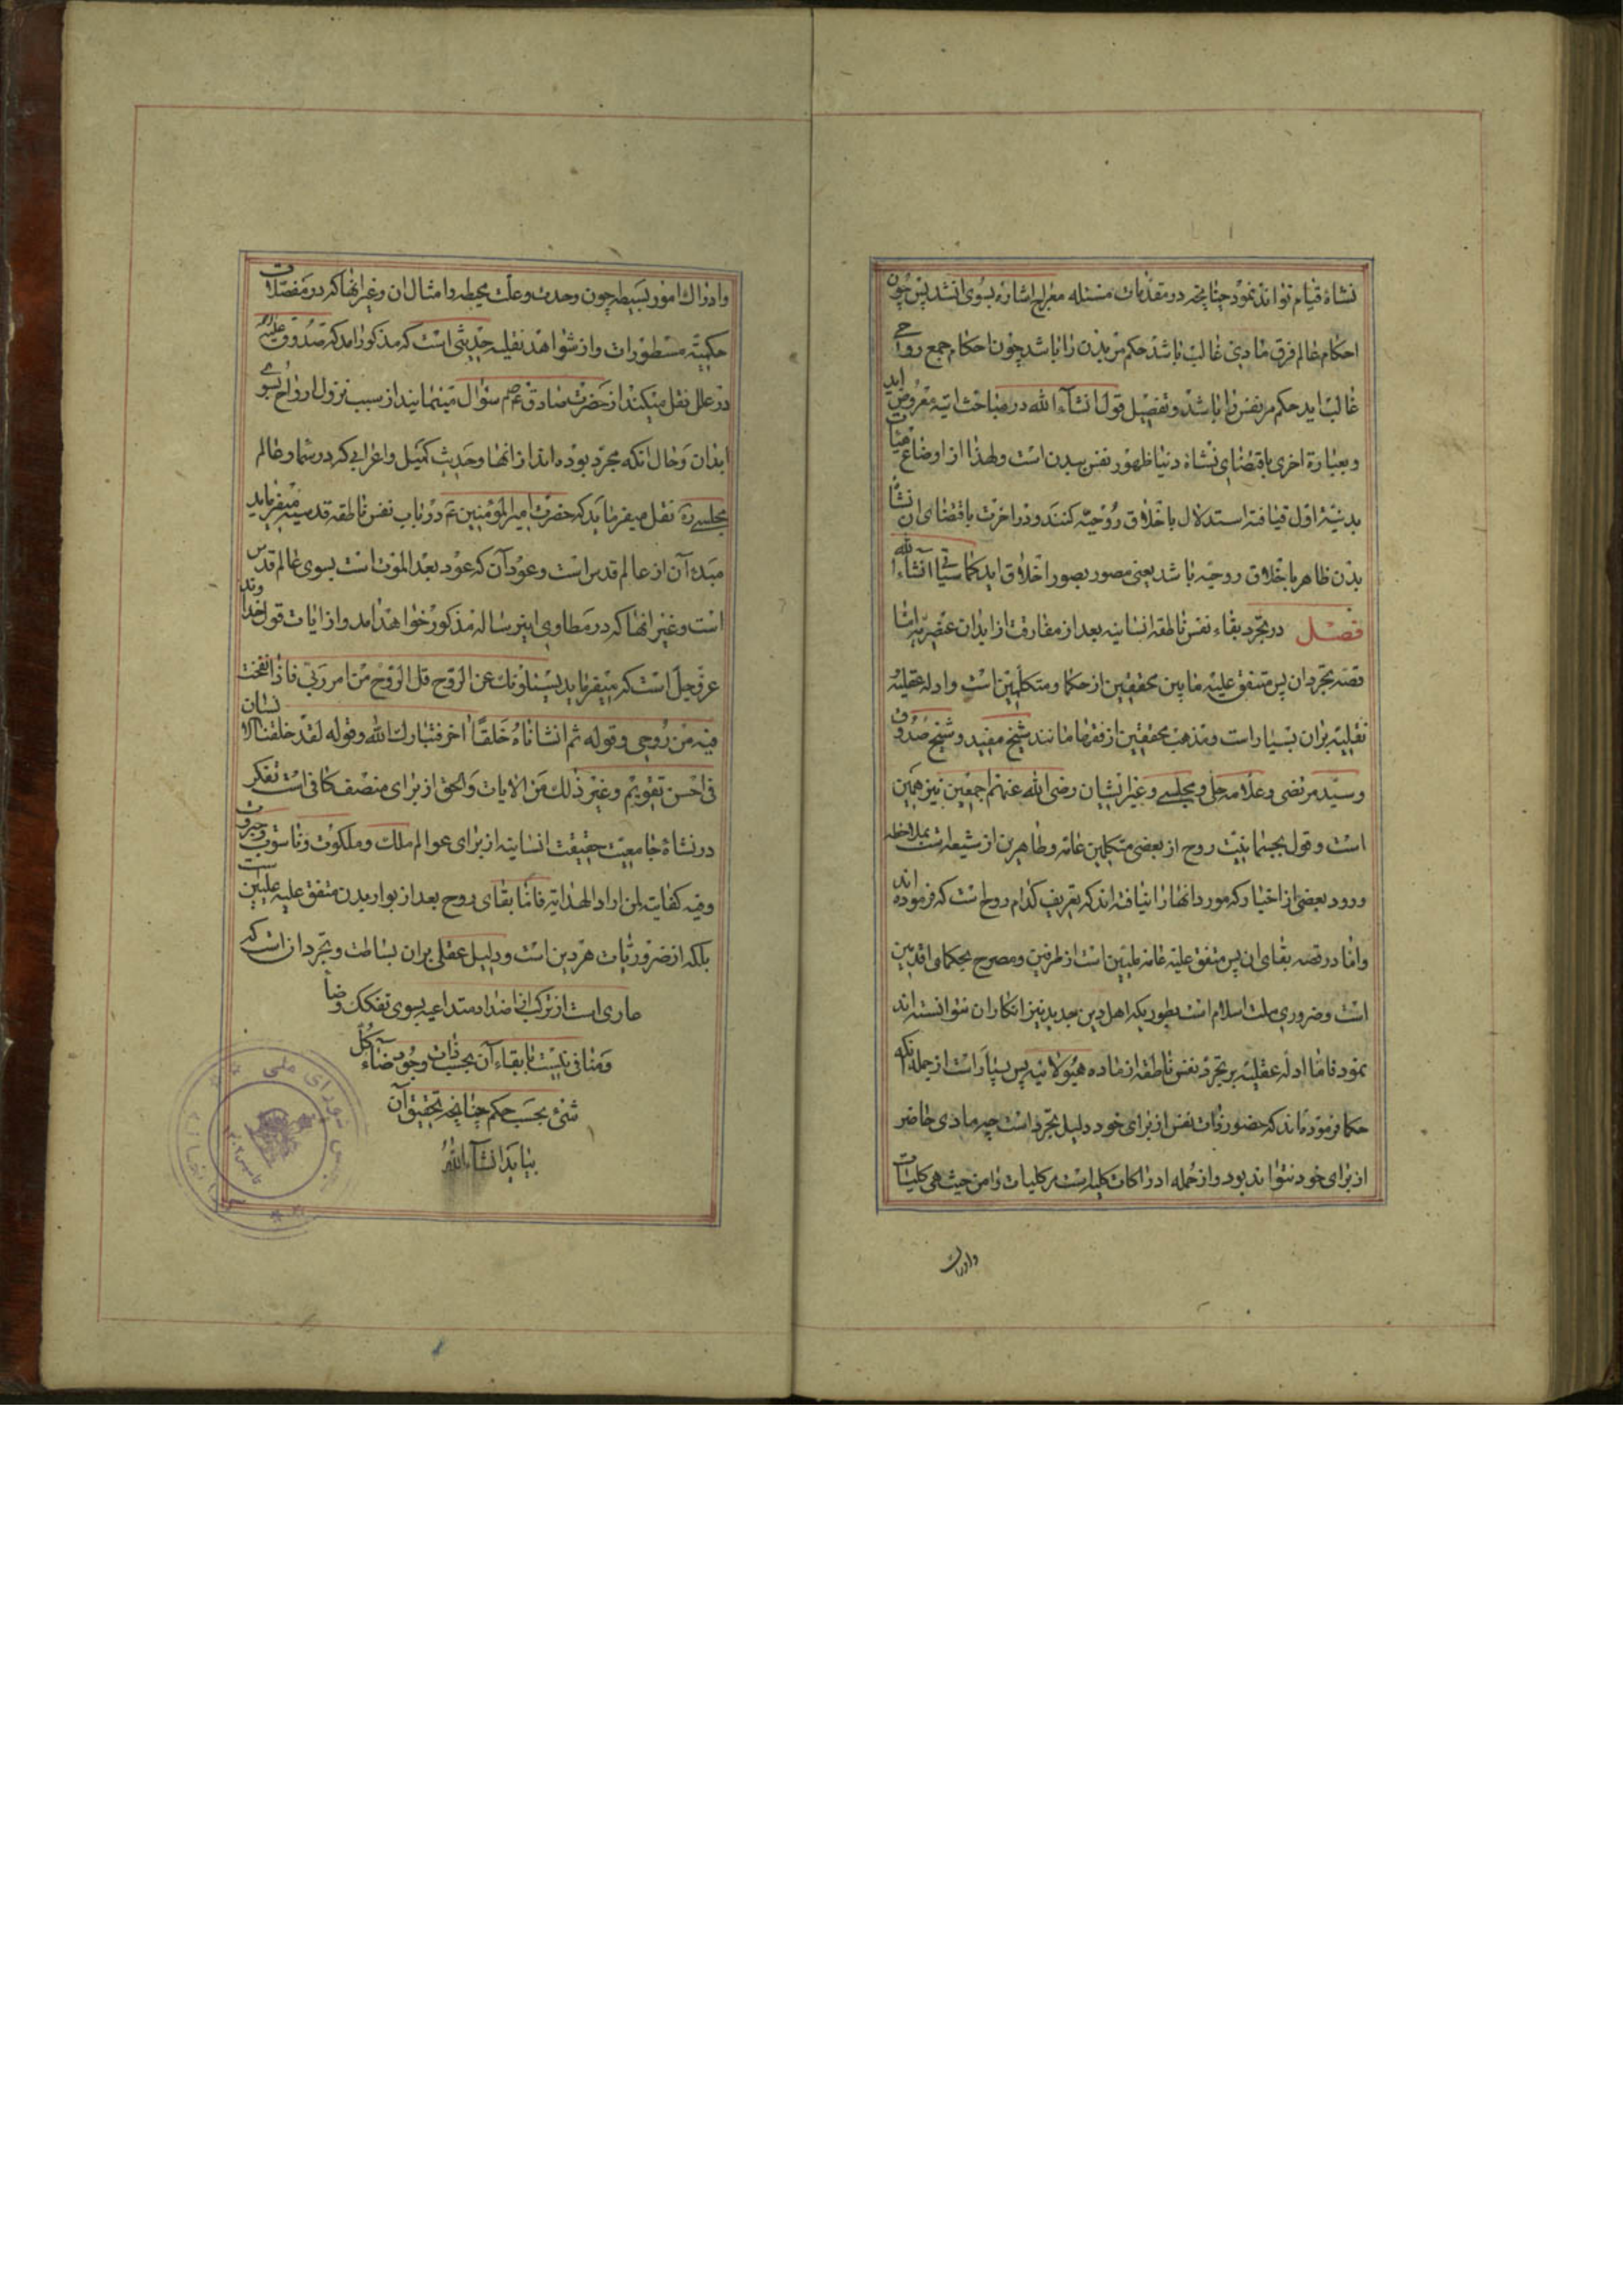 نشاهٔ قیام تواند نمود چنانچه در مقدمات مسئله معراج اشاره بسوی انشد پس چون
احکام عالم فرق مادی غالب باشد حکم مر بدن را باشد چون احکام جمع روحی
غالب اید حکم مر نفس را باشد و تفصیل قول انشآء الله در مباحث اتیه معروض اید
و بعبارة اخری باقتضای نشاة دنیا ظهور نفس ببدن است و لهذا از اوضاع هیئات
بدنیه اول قیافه استدلال باخلاق روحیه کنند و در اخرت باقتضای ان نشأ
بدن ظاهر باخلاق روحیه باشد یعنی مصور بصور اخلاق اید کما سیاتی انشآء الله
فصل در تجرد بقاء نفس ناطقه انسانیه بعد از مفارقت از ابدان عنصریه اما
قصه تجرد ان پس متفق علیه مابین محققین از حکما و متکلمین است و ادله عقلیه
نقلیه بران بسیار است و مذهب محققین از فقها مانند شیخ مفید و شیخ صدوق
و سید مرتضی و علامه حلی و مجلسی و غیر ایشان رضی الله عنهم اجمعین نیز همین
است و قول بجسمانیت روح از بعضی متکلمین عامه و ظاهرین از شیعه است بملاحظه
ورود بعضی از اخبار که مورد انها را نیافته اند که تعریف کدام روح است که فرموده اند
و اما در قصه بقای ان پس متفق علیه عامه ملیین است از طرفین و مصرح بحکمای اقدمین
است و ضروری ملت اسلام است بطوریکه اهل دین جدید نیز انکار ان نتوانسته اند
نمود فاما ادله عقلیه بر تجرد نفس ناطقه از ماده هیولانیه پس بسیار است از جمله انکه
حکما فرموده اند که حضور ذات نفس از برای خود دلیل تجرد است چه مادی حاضر
از برای خود نتواند بود و از جمله ادراکات کلیه است مر کلیات را من حیث هی کلیات
وادراک
وادراک امور بسیطه چون وحدت و علت محیطه و امثال ان و غیر انها که در مفصلات
حکمیه مسطورات و از شواهد نقلیه حدیثی است که مذکور امد که صدوق علیه
در علل نقل میکند از حضرت صادق ع سؤال مینمایند از سبب نزول ارواح بسوی
ابدان و حال انکه مجرد بوده اند از انها و حدیث کمیل و اعرابی که در شما و عالم
مجلسی ره نقل میفرماید که حضرت امیر المؤمنین ع در باب نفس ناطقه قدسیه میفرماید
مبدء آن از عالم قدس است و عود آن که عود بعد الموت است بسوی عالم قدس
است و غیر انها که در مطاوی این رساله مذکور خواهد امد و از ایات قول خداوند
عز و جل است که میفرماید یسئلونک عن الروح قل الروح من امر ربی فاذا نفخت
فیه من روحی و قوله ثم انشاناه خلقًا اخر فتبارک الله و قوله لقد خلقنا الانسان
فی احسن تقویم و غیر ذلک من الایات و الحق از برای منصف کافی است تفکر
در نشاهٔ جامعیت حقیقت انسانیه از برای عوالم ملک و ملکوت و ناسوت و جبروت
و فیه کفایت لمن اراد الهدایه فاما بقای روح بعد از بوار بدن متفق علیه ملیین ست
بلکه از ضروریات هر دین است و دلیل عقلی بران بساطت و تجرد ان است که
عاری است از ترکب از اضداد متداعیه بسوی تفکک و ضا
و منافی نیست با بقاء آن بحسب ذات وجود ضآء کل
شیء بحسب حکم چنانچه تحقیق آن
بیاید انشآء الله
شورای ملی